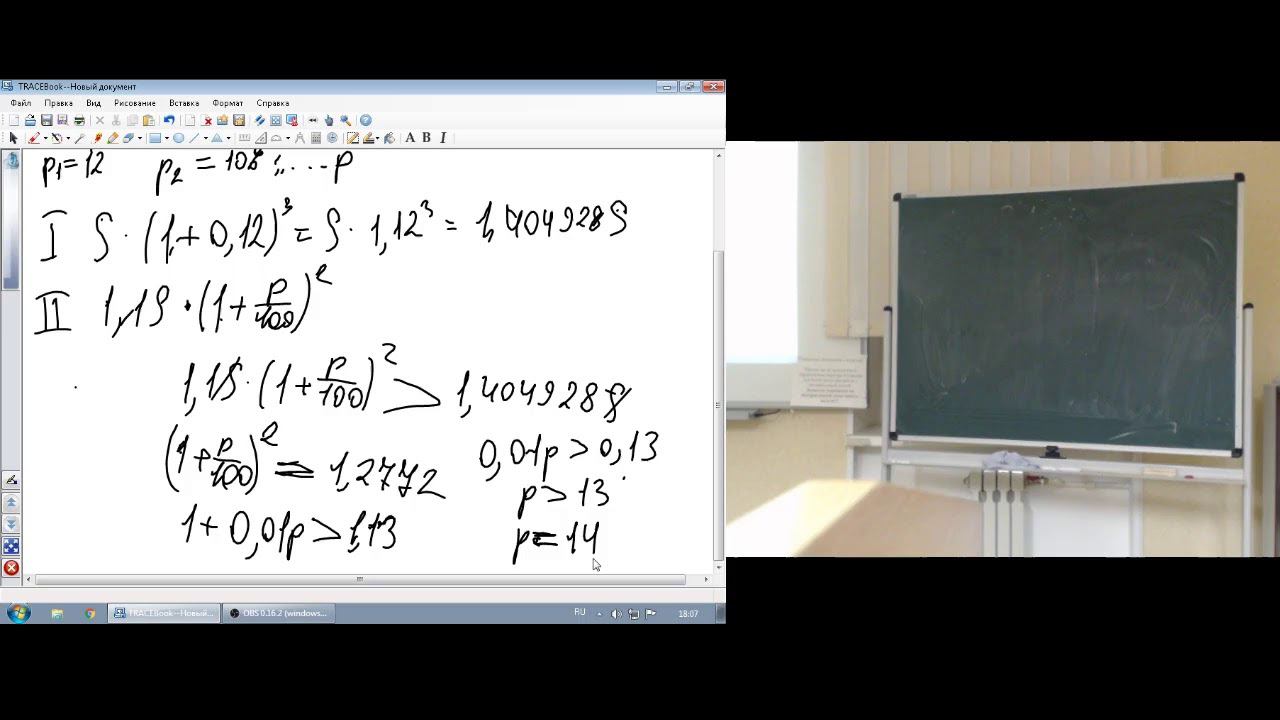 TRACEBook--Новый документ
Файл Правка Вид Рисование Вставка Формат Справка
A B I
p₁=12 p₂ = 10% ;...p
I S·(1,+0,12)³ = S·1,12³ = 1,404928S
II 1,1S·(1+p/100)²
1,1S·(1+p/100)² > 1,404928S
(1+p/100)² = 1,2772
1+0,01p>1,13
0,01p>0,13
p>13
p=14
TRACEBook--Новый...
OBS 0.16.2 (windows...
RU
18:07